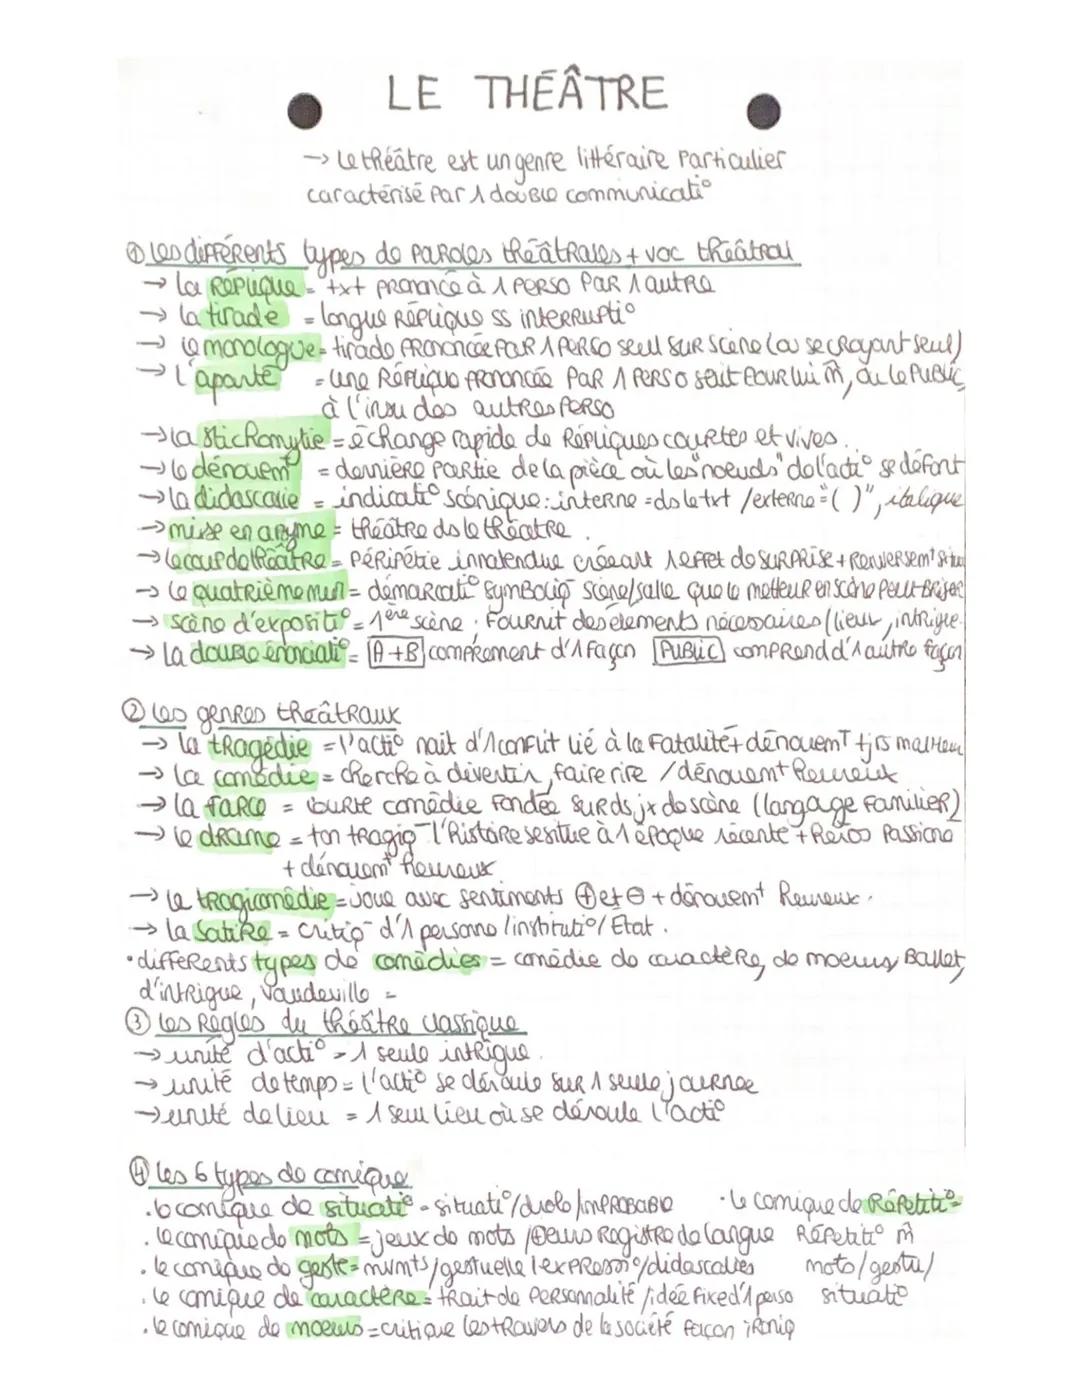 LE THÉÂTRE
→ Le théâtre est un genre littéraire particulier
caractérisé par 1 double communicati°
① Les différents types de paroles théâtrales + voc théâtral
→ la réplique = txt prononcé à 1 perso par 1 autre
→ la tirade = longue réplique ss interrupti°
→ le monologue = tirade prononcée par 1 perso seul sur scène (ou se croyant seul)
→ l'aparté = une réplique prononcée par 1 perso soit pour lui m̂, ou le public
à l'insu des autres perso
→ la stichomytie = échange rapide de répliques courtes et vives.
→ le dénouemt = dernière partie de la pièce où les "noeuds" de l'acti° se défont
→ la didascalie = indicati° scénique : interne = ds le txt / externe = "( )", italique
→ mise en abyme = théâtre ds le théâtre.
→ le coup de théâtre = péripétie inattendue créeant 1 effet de surprise + renversemt situ
→ le quatrième mur = démarcati° symboliq scène/salle que le metteur en scène peut briser
→ scène d'expositi° = 1ère scène. Fournit des élements nécessaires (lieux, intrigue
→ la double énonciati° = A+B comprement d'1 façon PUBLIC comprend d'1 autre façon
② les genres théâtraux
→ la tragédie = l'acti° nait d'1 conflit lié à la fatalité + dénouemt tjrs malheu
→ la comédie = cherche à divertir, faire rire / dénouemt heureux
→ la farce = courte comédie fondée sur ds jx de scène (langage familier)
→ le drame = ton tragiq l'histoire se situe à 1 époque récente + héros passionné
+ dénouemt heureux
→ la tragicomédie = joue avec sentiments ⊕ et ⊖ + dénouemt heureux.
→ la satire = critiq d'1 personne / instituti° / État.
• différents types de comédies = comédie de caractère, de moeurs, Ballet,
d'intrigue, vaudeville =
③ les règles du théâtre classique
→ unité d'acti° = 1 seule intrigue.
→ unité de temps = l'acti° se déroule sur 1 seule journée
→ unité de lieu = 1 seul lieu où se déroule l'acti°
④ les 6 types de comique
. le comique de situati° = situati°/drole/improbable • le comique de répétiti° =
. le comique de mots = jeux de mots / registre de langue Répétiti° m̂
. le comique de geste = mvmts/gestuelle/expressn°/didascalies mots/gestes/
. le comique de caractère = trait de personnalité / idée fixe d'1 perso situati°
. le comique de moeurs = critique les travers de la société façon ironiq